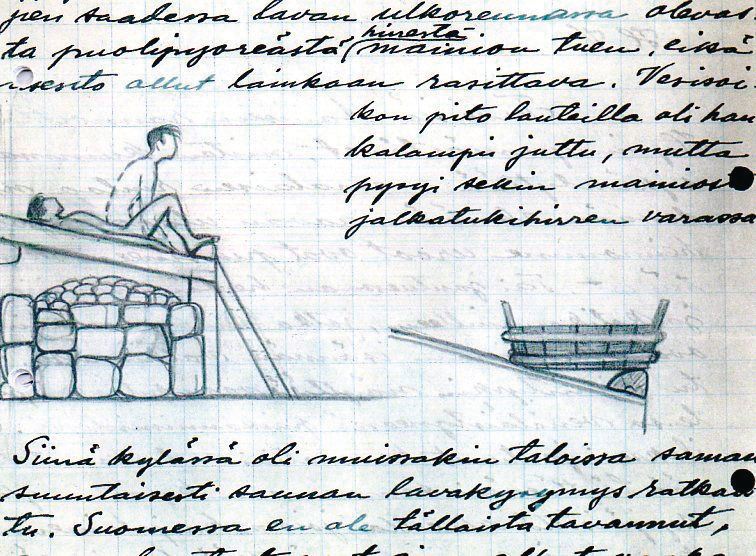 saadessa lavan ulkoreunassa olevas
hirrestä
ta puolipyöreästä mainion tuen, eikä
ollut lainkaan rasittava. Vesisoi-
kon pito lauteilla oli han
kalampi juttu, mutta
pysyi sekin mainiost
jalkatukihirren varassa
Siinä kylässä oli muissakin taloissa saman
suuntaisesti saunan lavakysymys ratkais
tu. Suomessa en ole tällaista tavannut,